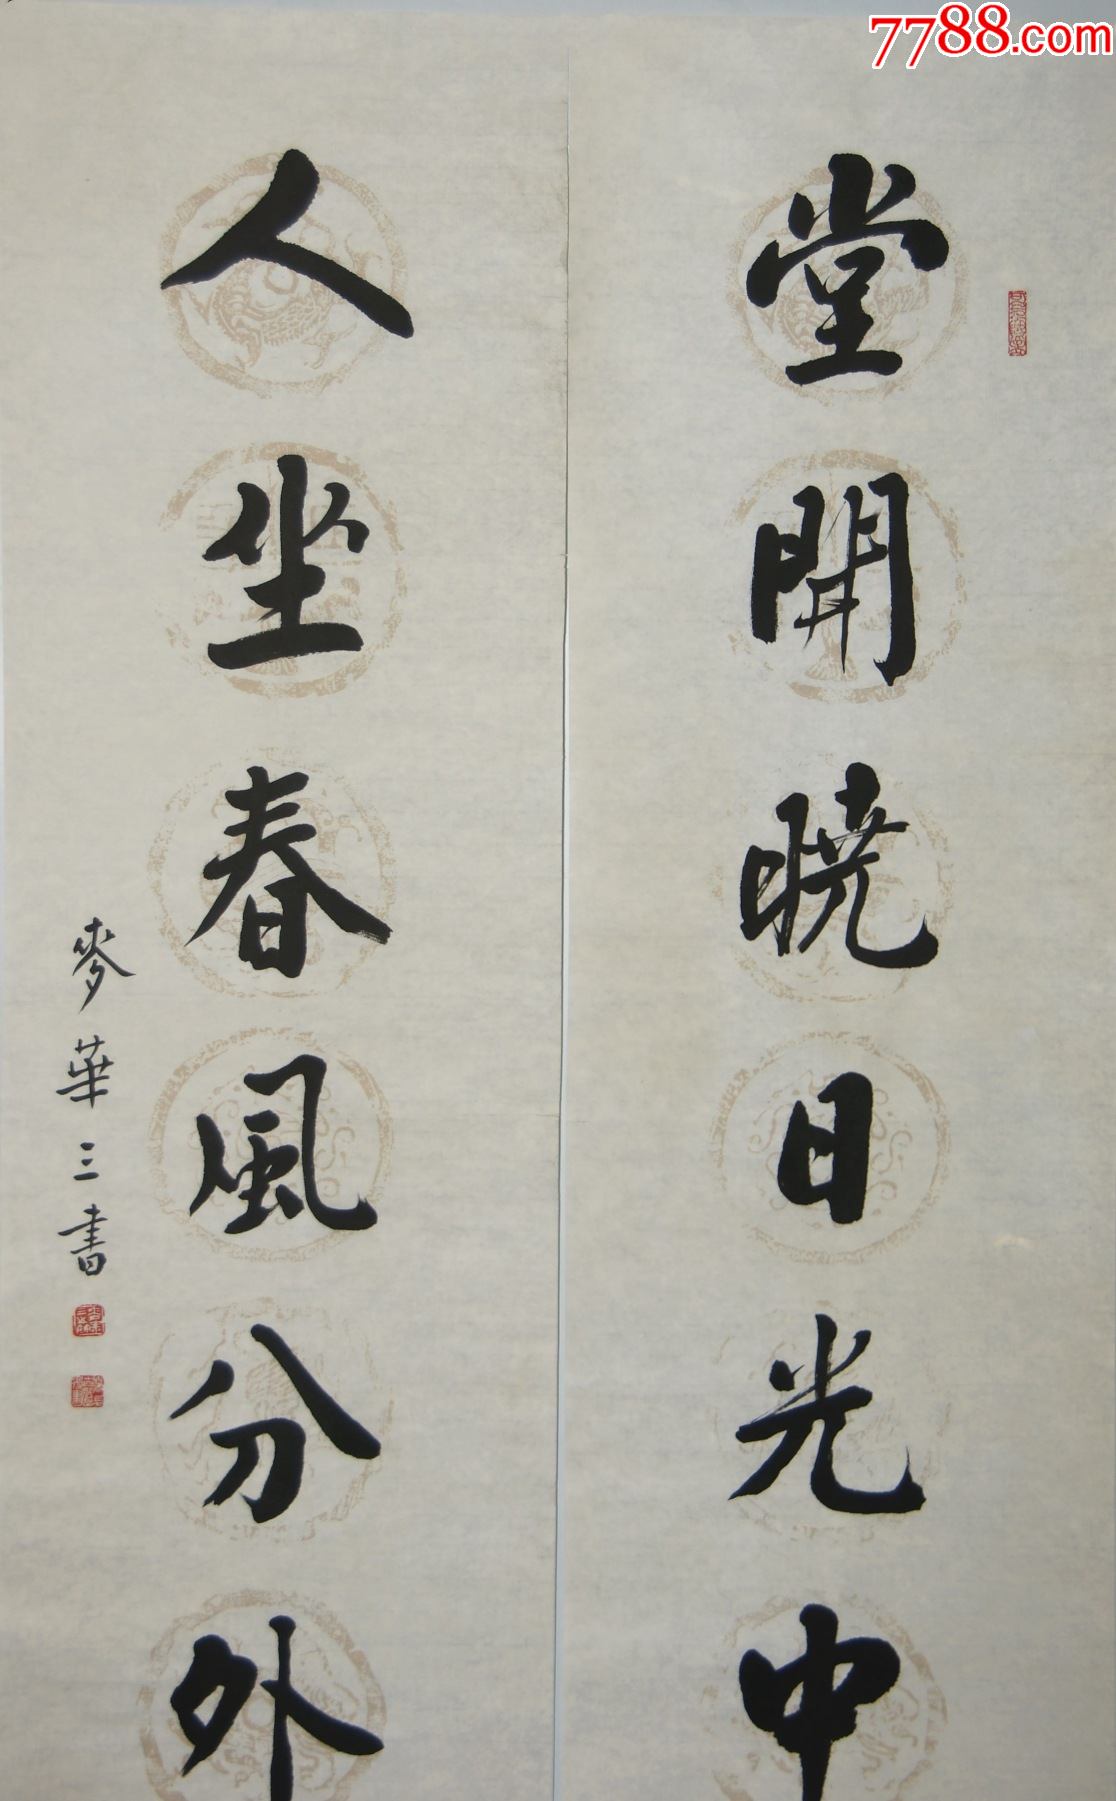 7788.com
堂開曉日光中
人坐春風分外
麥華三書